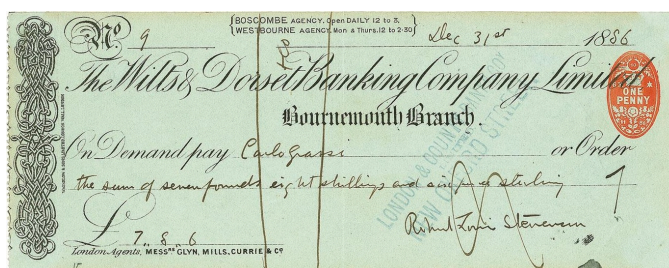 BOSCOMBE AGENCY. Open DAILY 12 to 3.
WESTBOURNE AGENCY. Mon & Thurs. 12 to 2·30
No 9
Dec 31st 1886
The Wilts & Dorset Banking Company Limited
ONE PENNY
Bournemouth Branch.
On Demand pay Carlo Grassi or Order
the sum of seven pounds eight shillings and six pence sterling
LONDON & COUNTY
£ 7. 8. 6
Robert Louis Stevenson
London Agents, MESSRS GLYN, MILLS, CURRIE & Co